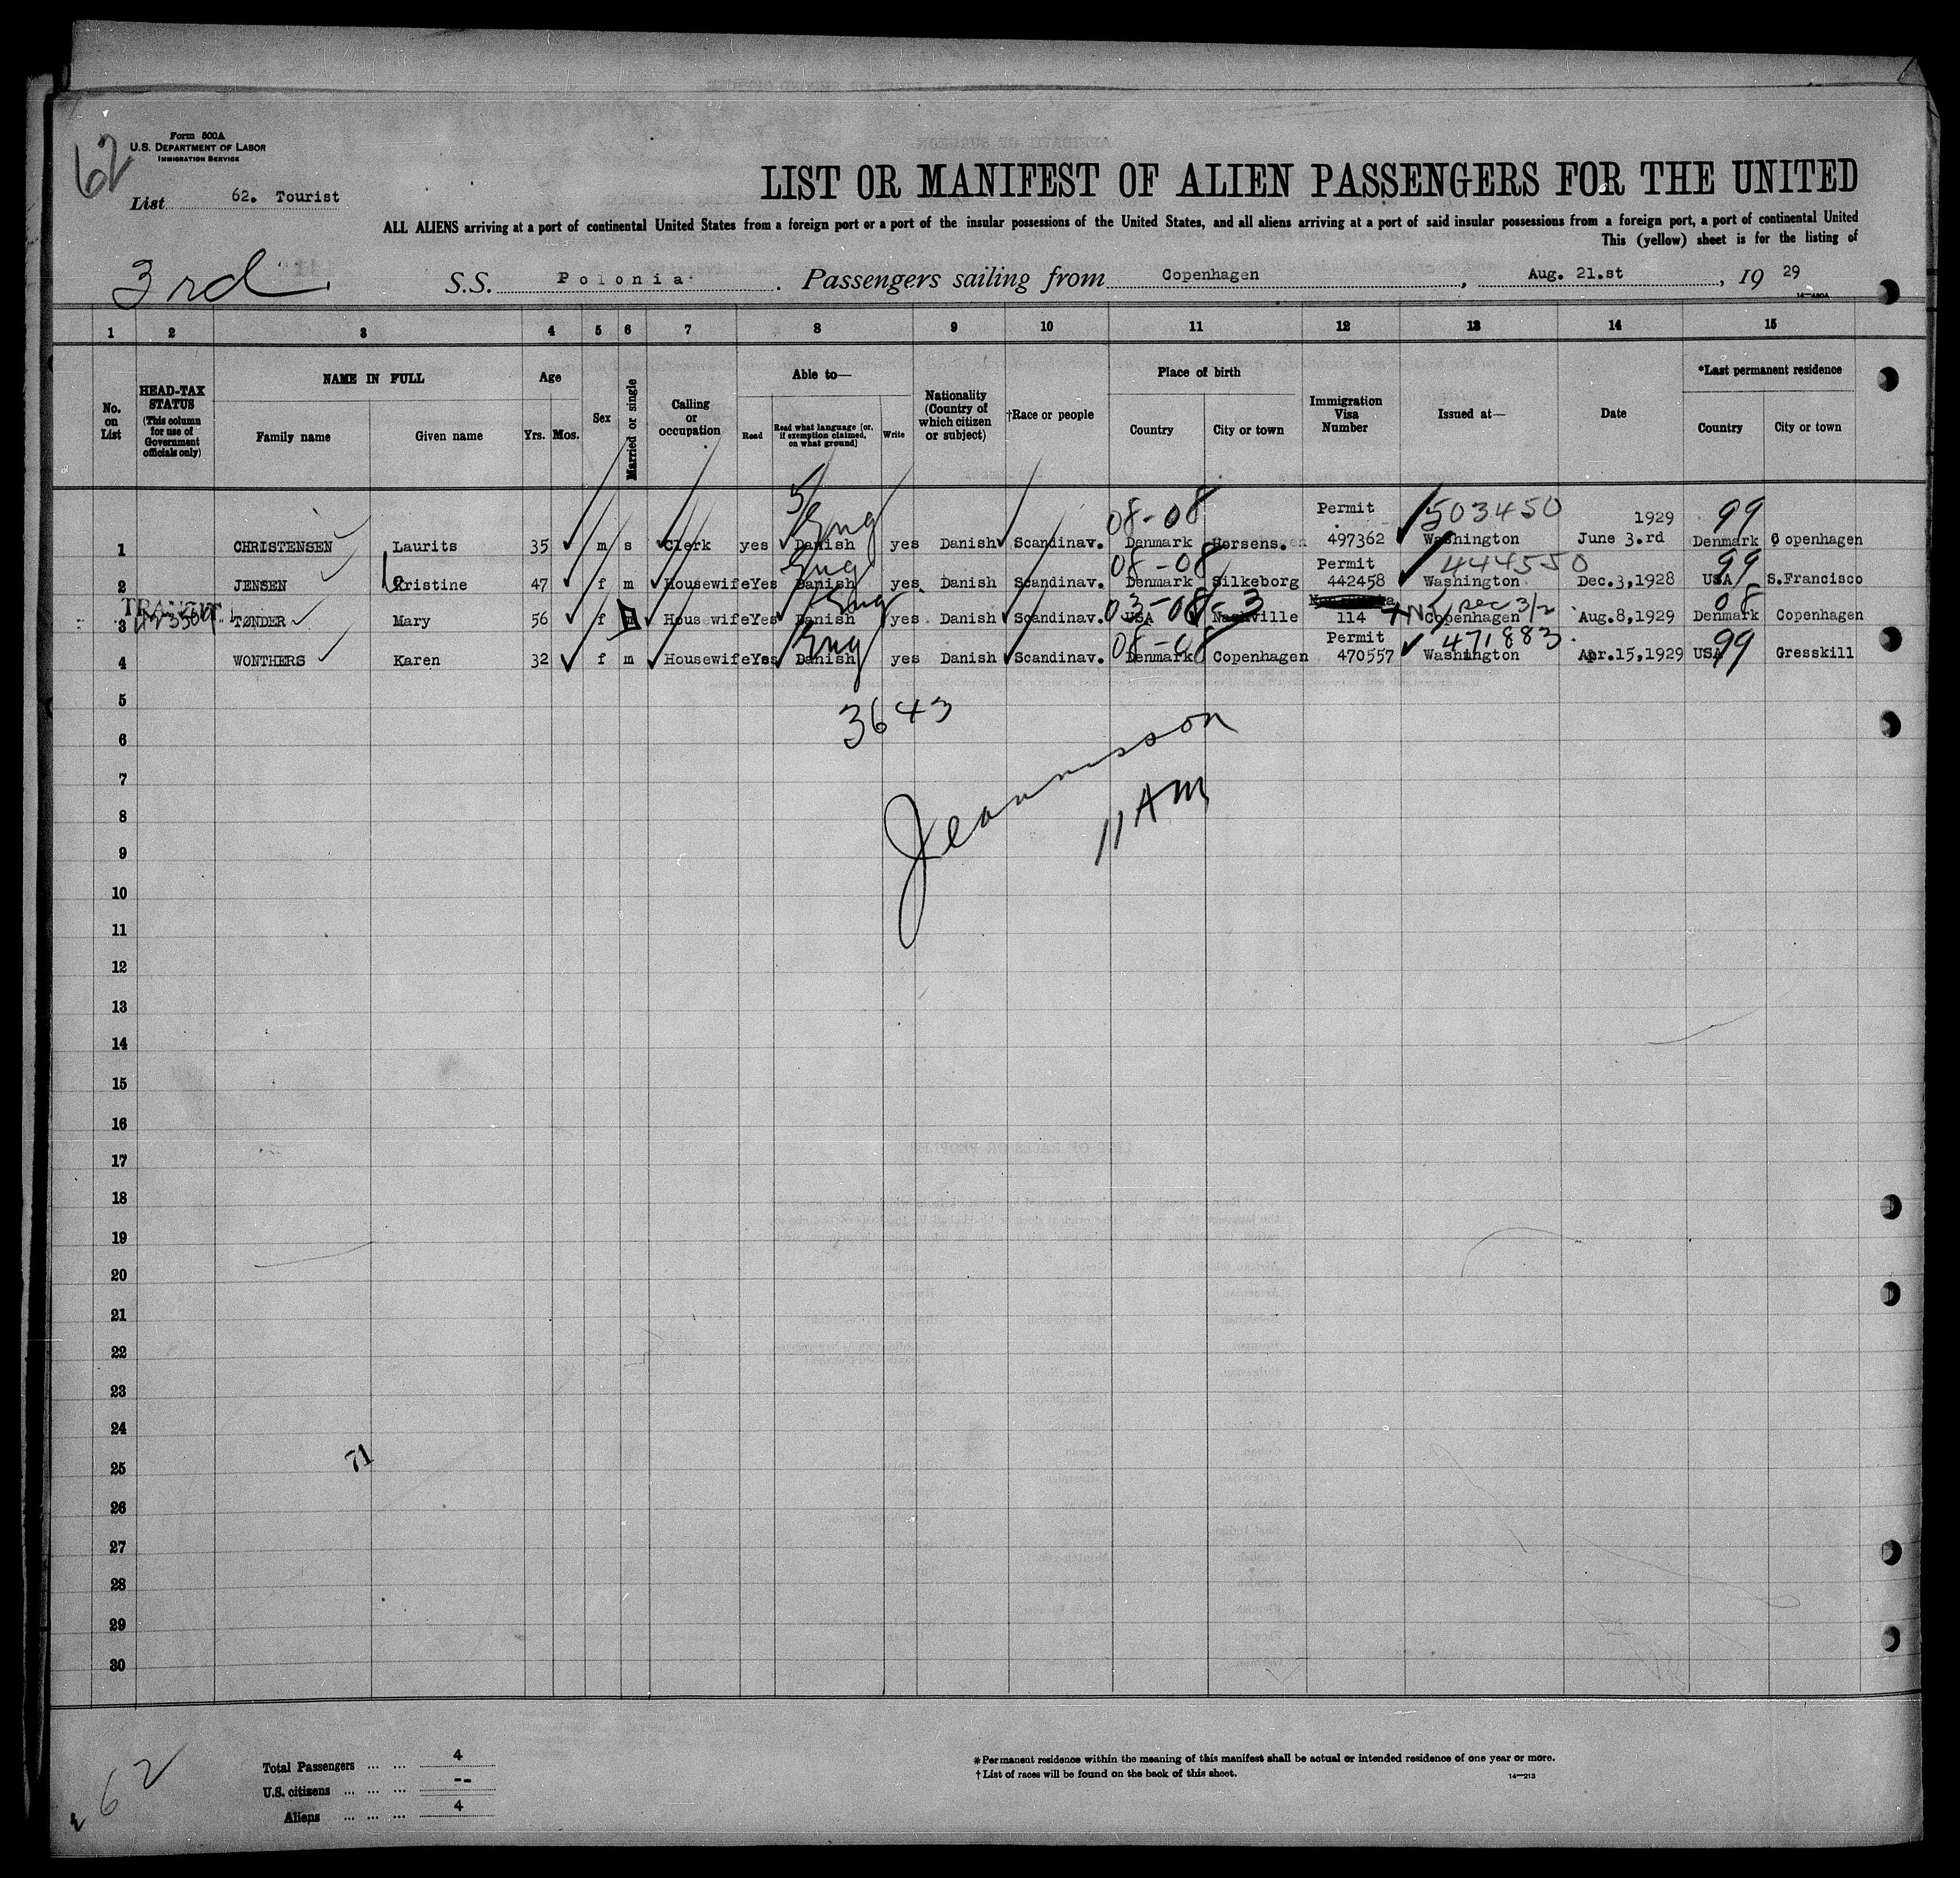 62
Form 500A
U.S. DEPARTMENT OF LABOR
IMMIGRATION SERVICE
List 62. Tourist
LIST OR MANIFEST OF ALIEN PASSENGERS FOR THE UNITED
ALL ALIENS arriving at a port of continental United States from a foreign port or a port of the insular possessions of the United States, and all aliens arriving at a port of said insular possessions from a foreign port, a port of continental United
This (yellow) sheet is for the listing of
3rd
S.S. Polonia. Passengers sailing from Copenhagen, Aug. 21.st, 19 29
14—430A
1 2 3 4 5 6 7 8 9 10 11 12 13 14 15
No. on List
HEAD-TAX STATUS (This column for use of Government officials only)
NAME IN FULL
Family name Given name
Age
Yrs. Mos.
Sex
Married or single
Calling or occupation
Able to—
Read Read what language [or, if exemption claimed, on what ground] Write
Nationality (Country of which citizen or subject)
†Race or people
Place of birth
Country City or town
Immigration Visa Number
Issued at—
Date
*Last permanent residence
Country City or town
5/Eng 08-08 Permit 503450 1929 99
1 CHRISTENSEN Laurits 35 m s Clerk yes Danish yes Danish Scandinav. Denmark Horsens. 497362 Washington June 3.rd Denmark Copenhagen
Eng 08-08 Permit 444550 99
2 JENSEN Kristine 47 f m Housewife Yes Danish yes. Danish Scandinav. Denmark Silkeborg 442458 Washington Dec.3,1928 USA S.Francisco
TRANSIT Eng 03-08-3 Sec 3/2 08
3 TØNDER Mary 56 f m Housewife Yes Danish yes Danish Scandinav. USA Nashville 114 Copenhagen Aug.8,1929 Denmark Copenhagen
Eng 08-08 Permit 471883. 99
4 WONTHERS Karen 32 f m Housewife Yes Danish yes Danish Scandinav. Denmark Copenhagen 470557 Washington Apr.15,1929 USA Gresskill
5
3643
6
7
8
11 AM
9
10
11
12
13
14
15
16
17
18
19
20
21
22
23
24
71
25
26
27
28
29
30
62
Total Passengers ... ... 4
U.S. citizens ... ... ... --
Aliens ... ... ... 4
*Permanent residence within the meaning of this manifest shall be actual or intended residence of one year or more.
†List of races will be found on the back of this sheet.
14—213